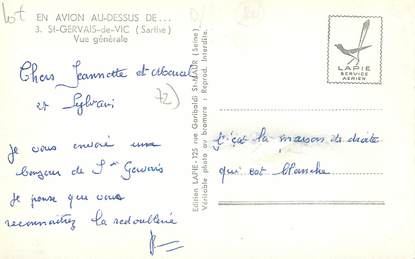 Lot
EN AVION AU-DESSUS DE...
3. St-GERVAIS-de-VIC (Sarthe)
Vue générale
72)
Chers Jeannette et Marcel
et Sylvain
Je vous envoie une
bonjour de St Gervais
je pense que vous
reconnaitrez la
Edition LAPIE - 125 rue Garibaldi St-MAUR (Seine)
Véritable photo au bromure : Reprod. Interdite.
LAPIE
SERVICE
AERIEN
la maison de droite
qui est blanche